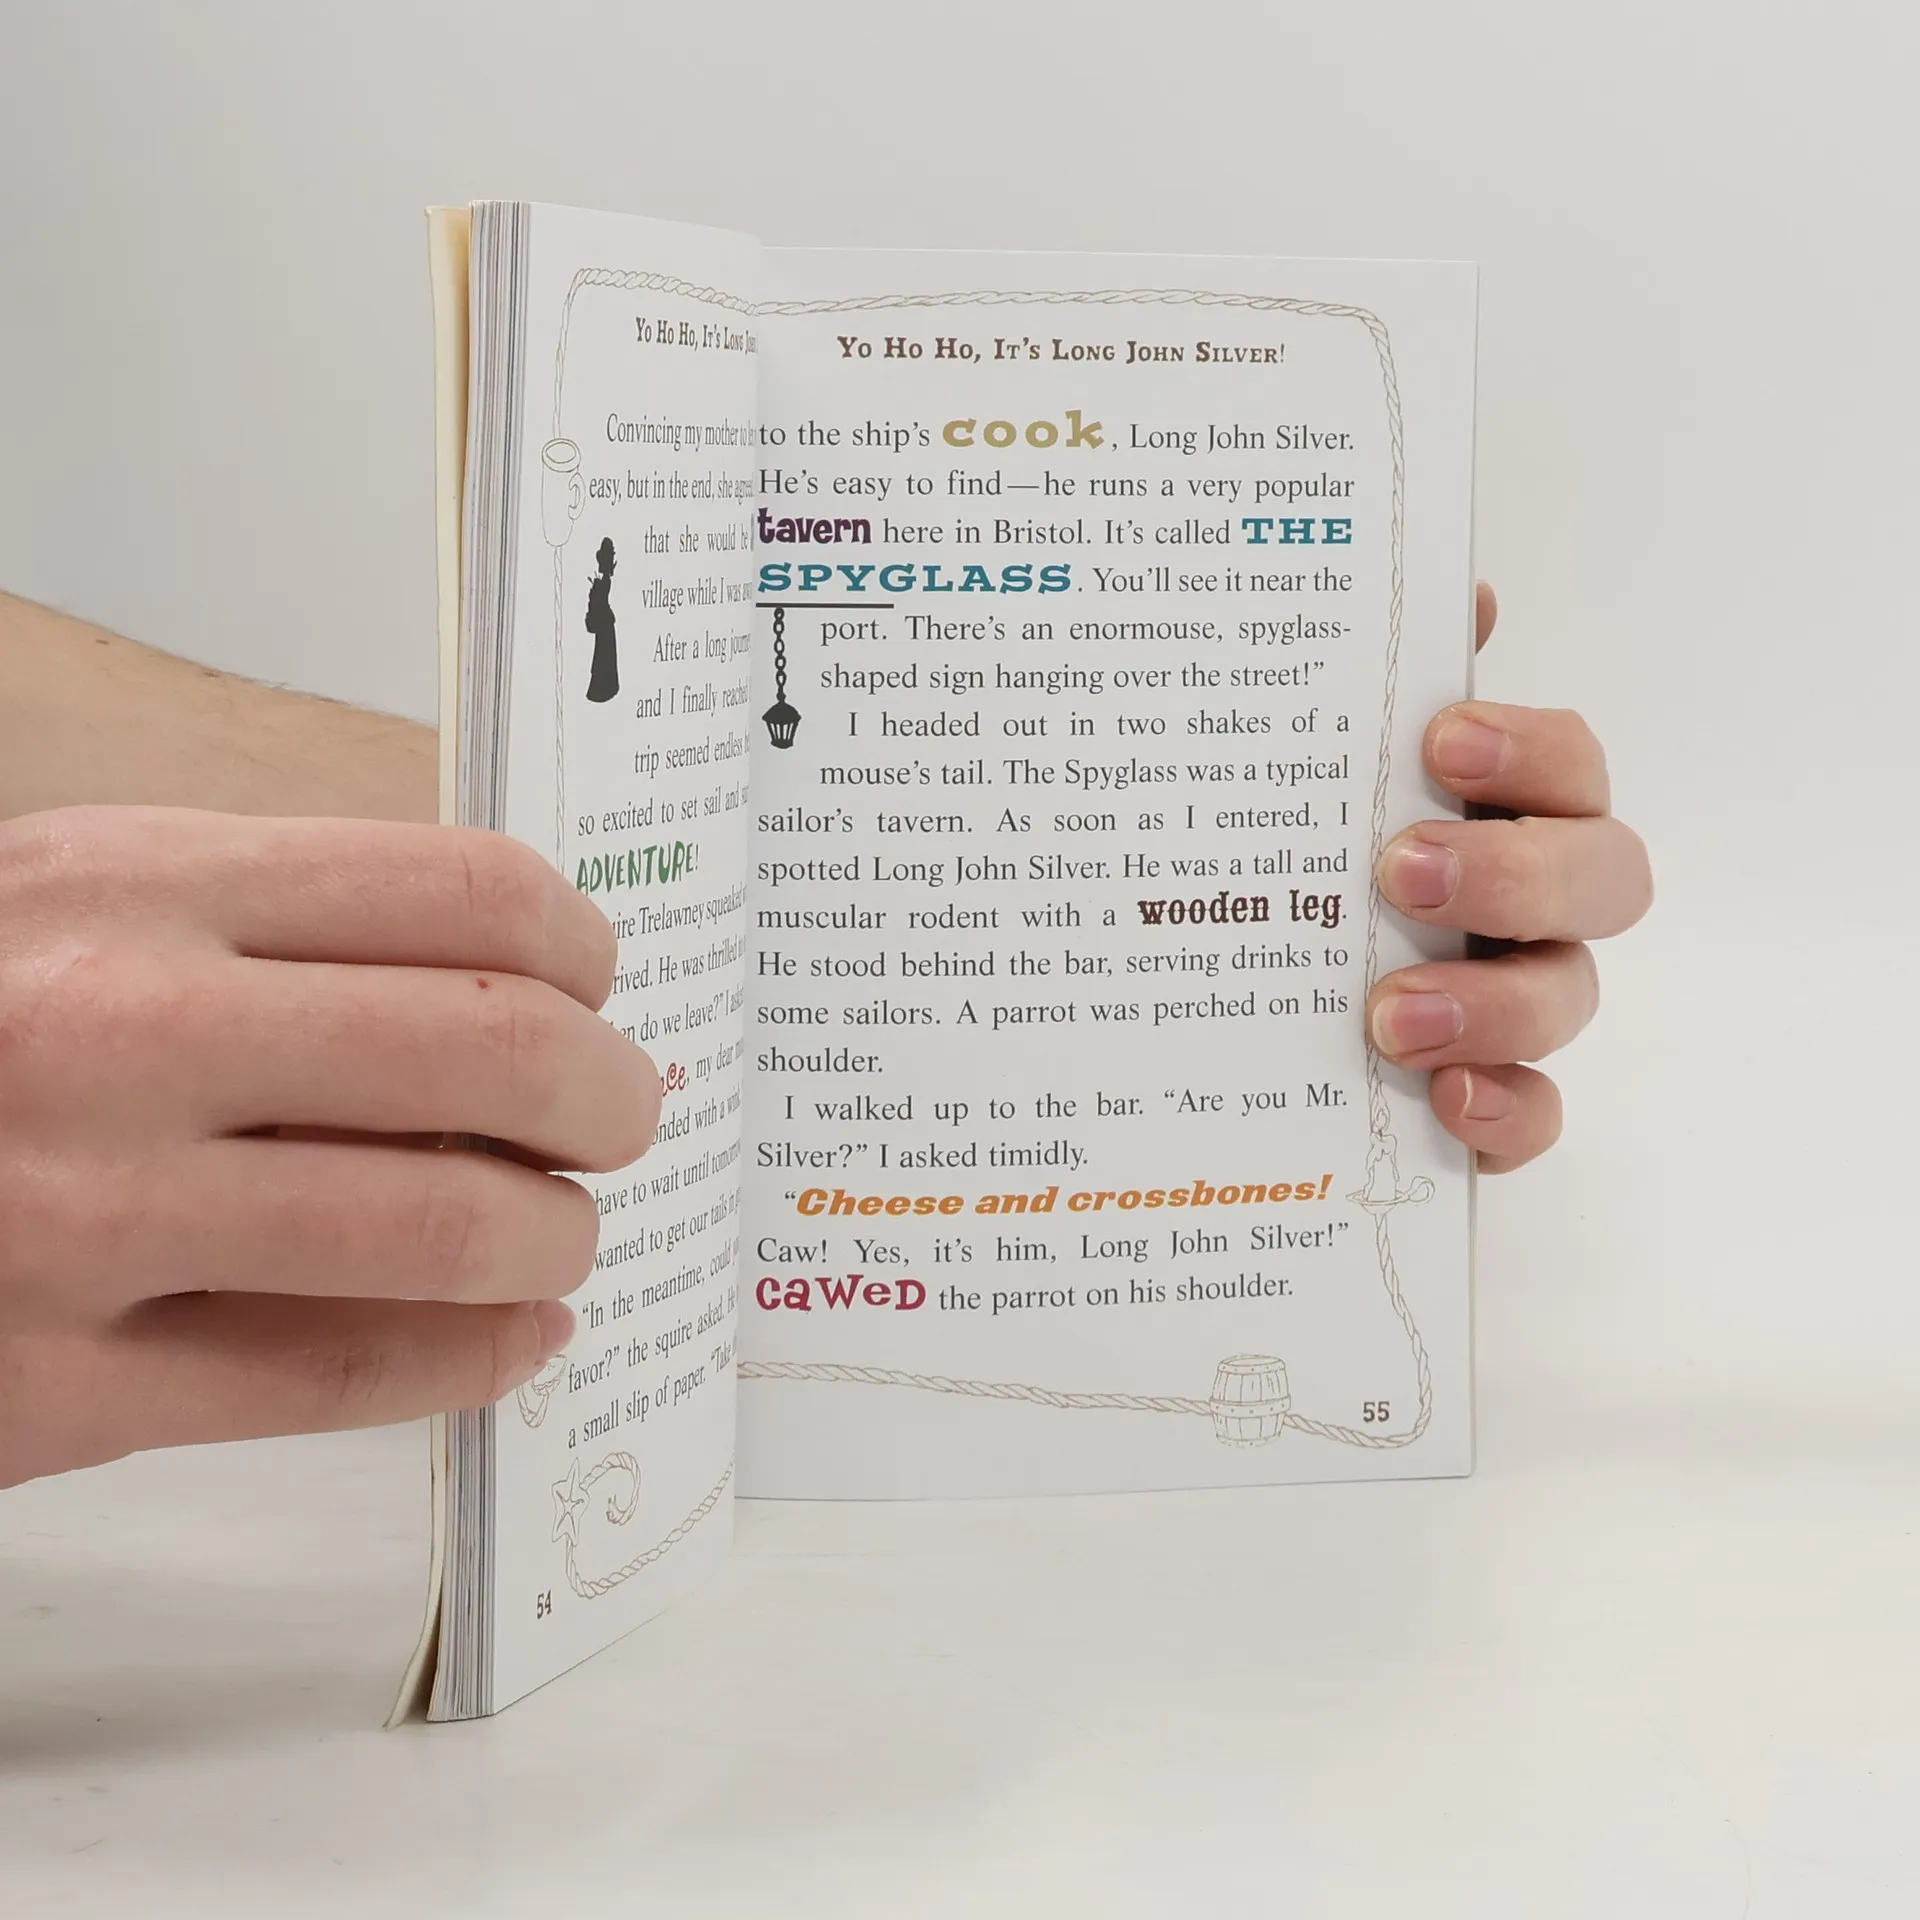 Yo Ho Ho, It's Long
Convincing my mother to
easy, but in the end, she
that she would be
village while I was
After a long
and I finally
trip seemed endless
so excited to set sail and
ADVENTURE!
Trelawney squeaked
He was thrilled
do we leave?" I
my dear
with a
have to wait until
wanted to get our tails in
"In the meantime, could
favor?" the squire asked. He
a small slip of paper. "Take
54
Yo Ho Ho, It's Long John Silver!
to the ship's cook, Long John Silver.
He's easy to find—he runs a very popular
tavern here in Bristol. It's called THE
SPYGLASS. You'll see it near the
port. There's an enormouse, spyglass-
shaped sign hanging over the street!"
I headed out in two shakes of a
mouse's tail. The Spyglass was a typical
sailor's tavern. As soon as I entered, I
spotted Long John Silver. He was a tall and
muscular rodent with a wooden leg.
He stood behind the bar, serving drinks to
some sailors. A parrot was perched on his
shoulder.
I walked up to the bar. "Are you Mr.
Silver?" I asked timidly.
"Cheese and crossbones!
Caw! Yes, it's him, Long John Silver!"
CaWeD the parrot on his shoulder.
55